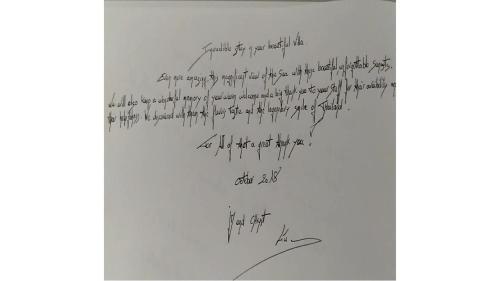 Incredible stay in your beautiful villa
Even more amazing this magnificent view of the sea with those beautiful unforgettable sunsets.
We will also keep a wonderful memory of your warm welcome and a big thank you to your staff for their availability and
their happiness. We discovered with them the flavors taste and the legendary smile of Thailand.
For All of that a great thank you!
october 2018
and